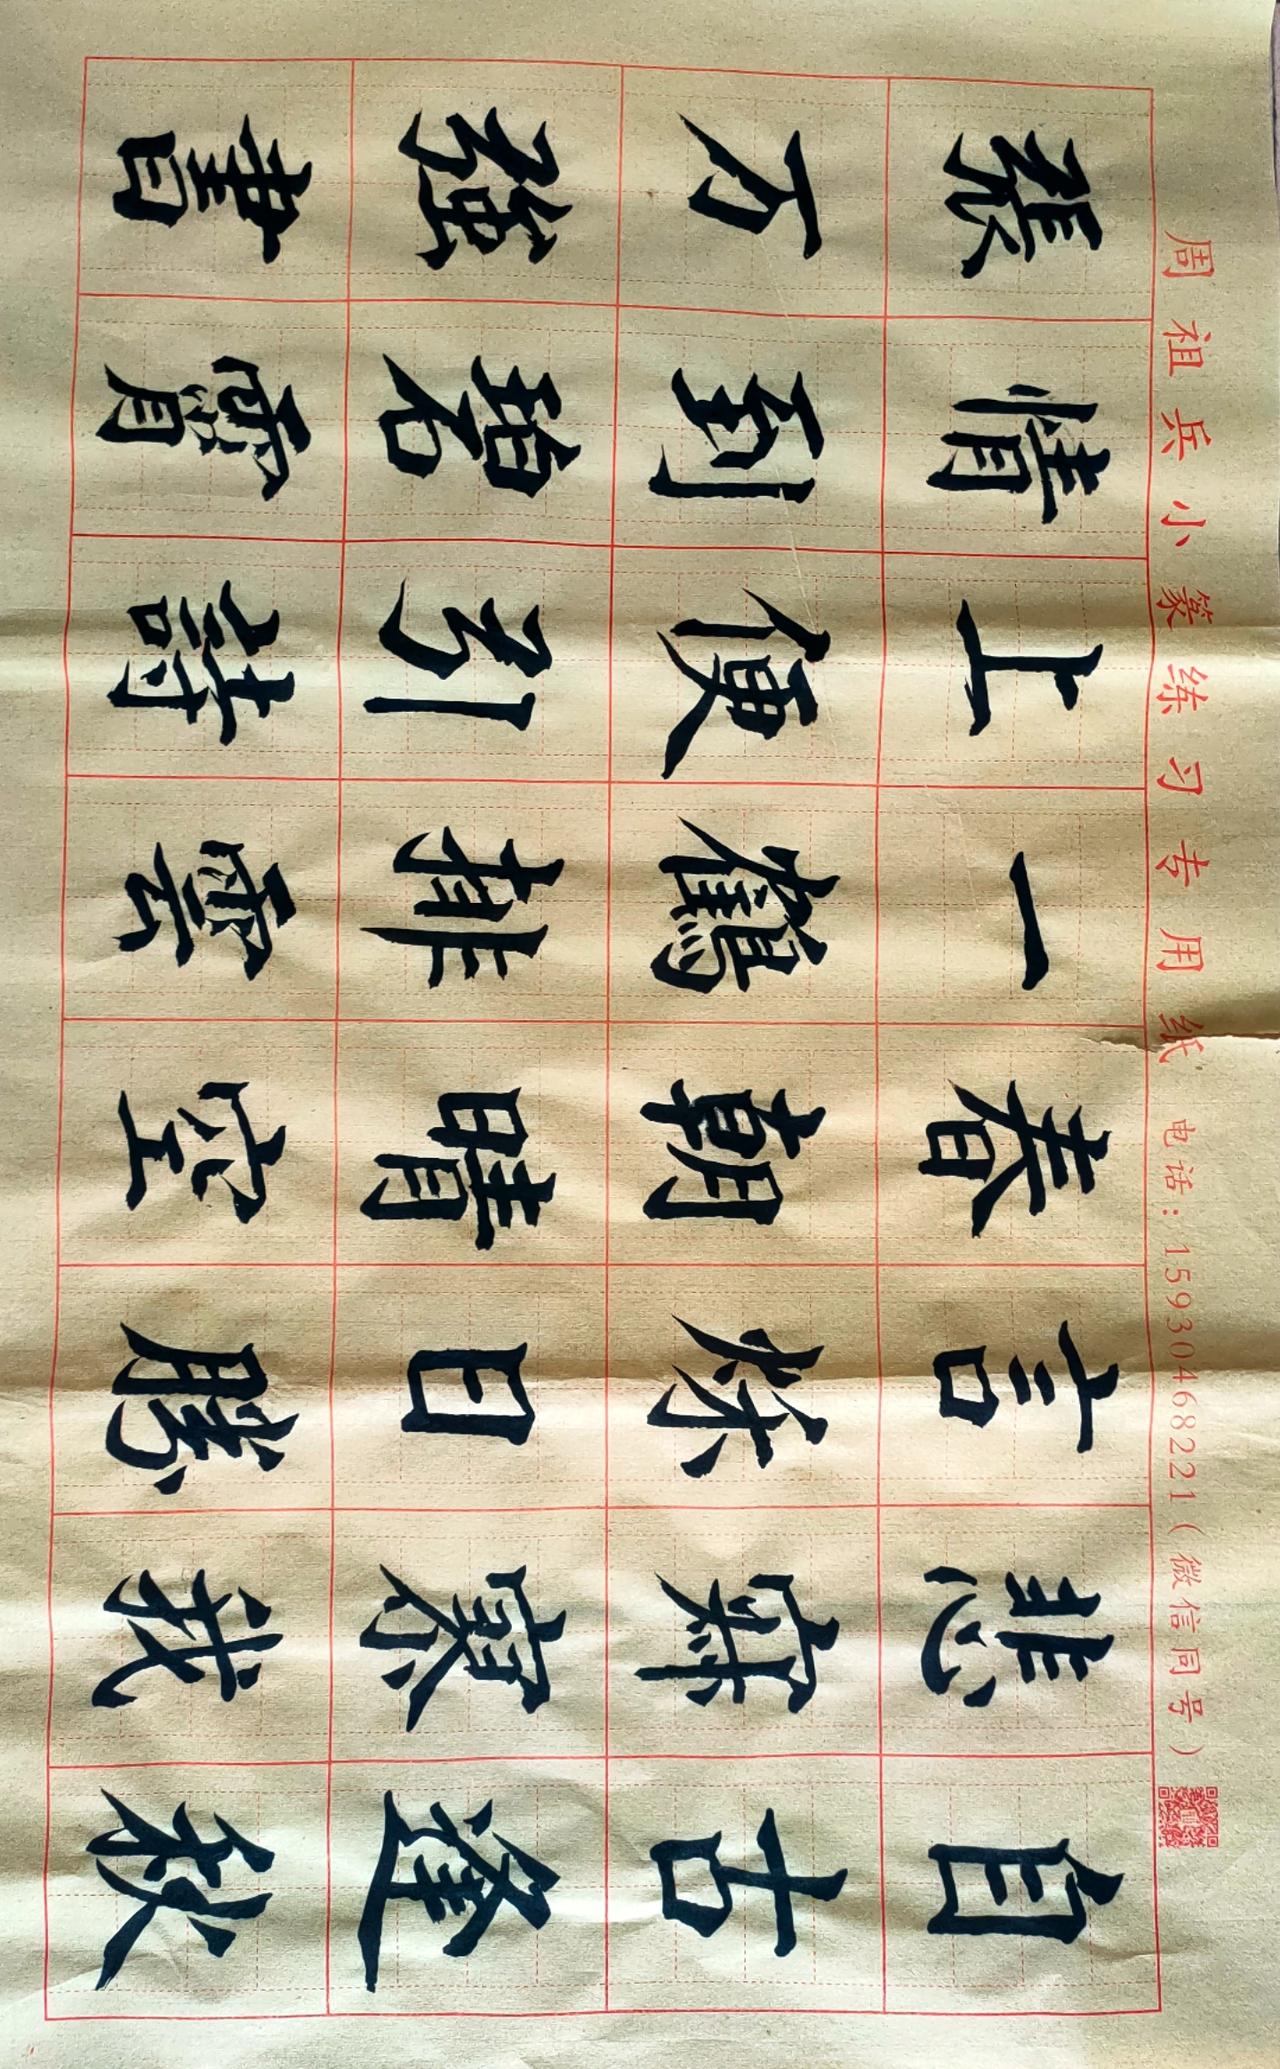 周祖兵小篆练习专用纸 电话：15930468221（微信同号）
自古逢秋
悲寂寥我
言秌日勝
春朝晴空
一鶴排雲
上便引詩
情到碧霄
張万強書